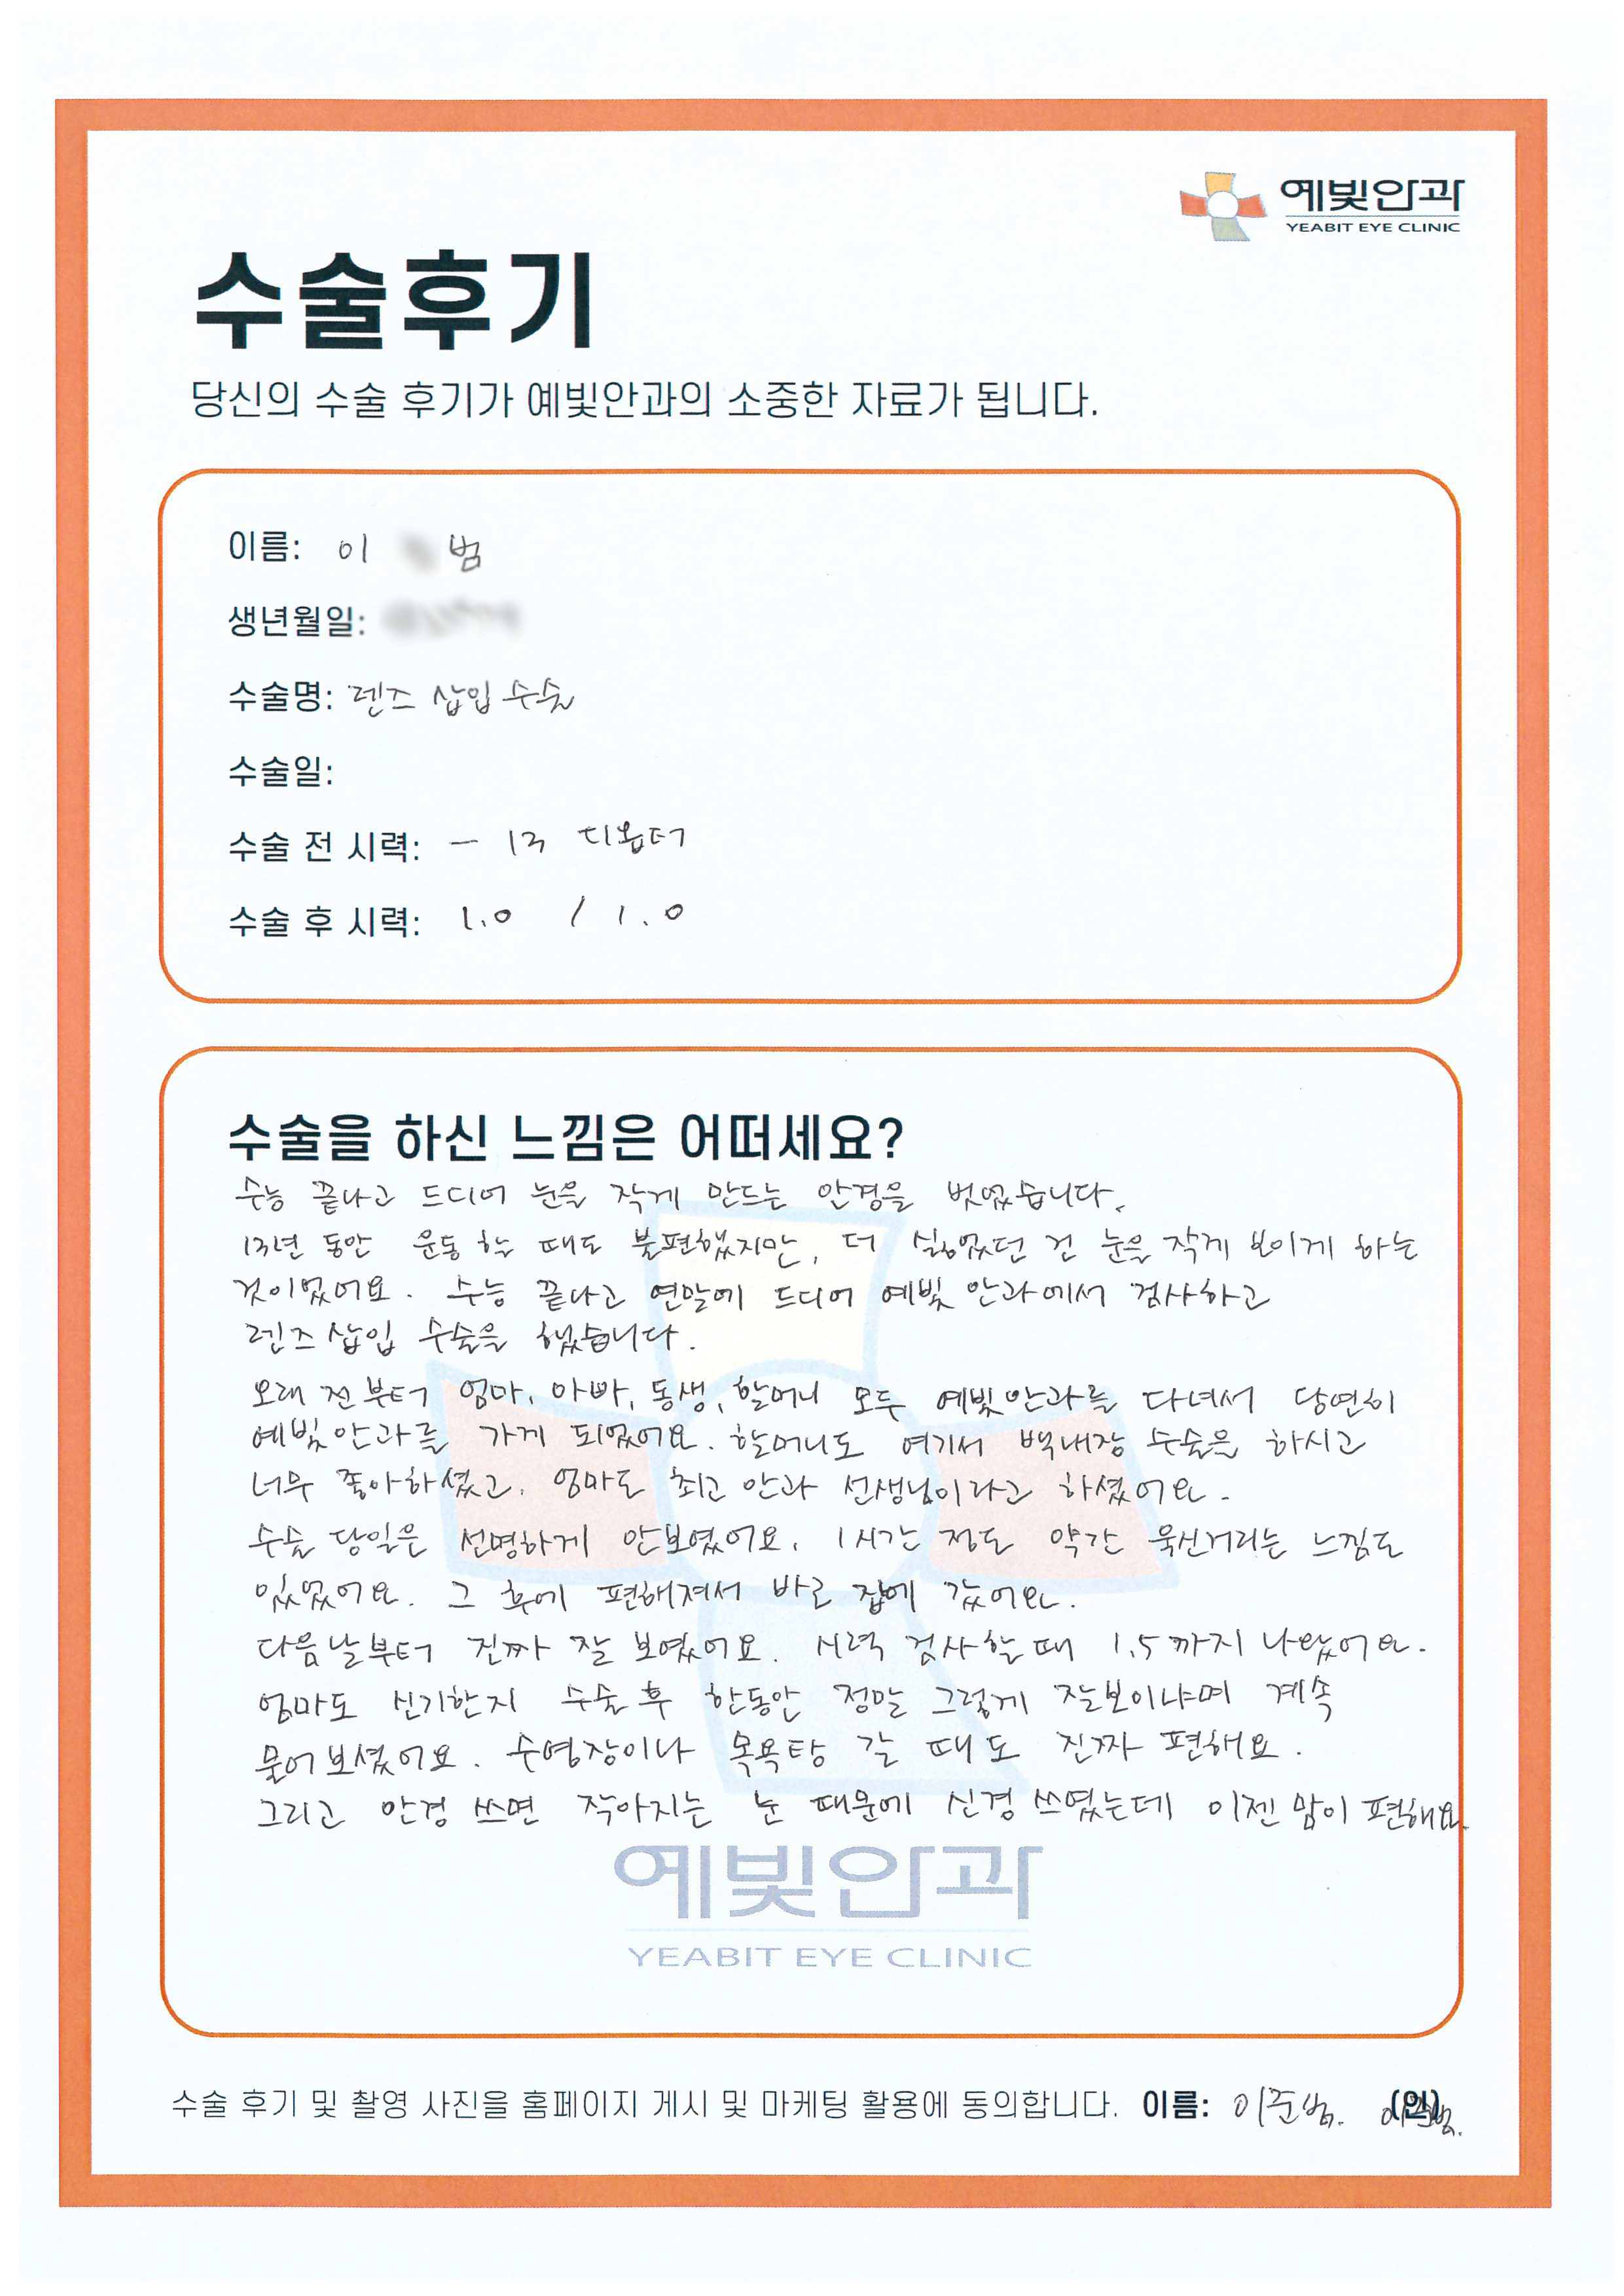 예빛안과
YEABIT EYE CLINIC
수술후기
당신의 수술 후기가 예빛안과의 소중한 자료가 됩니다.
이름: 이 범
생년월일:
수술명: 렌즈 삽입 수술
수술일:
수술 전 시력: - 13 디옵터
수술 후 시력: 1.0 / 1.0
수술을 하신 느낌은 어떠세요?
수능 끝나고 드디어 눈을 작게 만드는 안경을 벗었습니다.
13년 동안 운동 할 때도 불편했지만, 더 싫었던 건 눈을 작게 보이게 하는
것이었어요. 수능 끝나고 연말에 드디어 예빛 안과에서 검사하고
렌즈 삽입 수술을 했습니다.
오래 전부터 엄마, 아빠, 동생, 할머니 모두 예빛안과를 다녀서 당연히
예빛안과를 가게 되었어요. 할머니도 여기서 백내장 수술을 하시고
너무 좋아하셨고, 엄마도 최고 안과 선생님이라고 하셨어요.
수술 당일은 선명하게 안보였어요. 1시간 정도 약간 욱신거리는 느낌도
있었어요. 그 후에 편해져서 바로 집에 갔어요.
다음날부터 진짜 잘 보였어요. 시력 검사할 때 1.5까지 나왔어요.
엄마도 신기한지 수술 후 한동안 정말 그렇게 잘보이냐며 계속
물어보셨어요. 수영장이나 목욕탕 갈 때도 진짜 편해요.
그리고 안경 쓰면 작아지는 눈 때문에 신경 쓰였는데 이젠 맘이 편해요.
예빛안과
YEABIT EYE CLINIC
수술 후기 및 촬영 사진을 홈페이지 게시 및 마케팅 활용에 동의합니다. 이름: 이준범. (인)